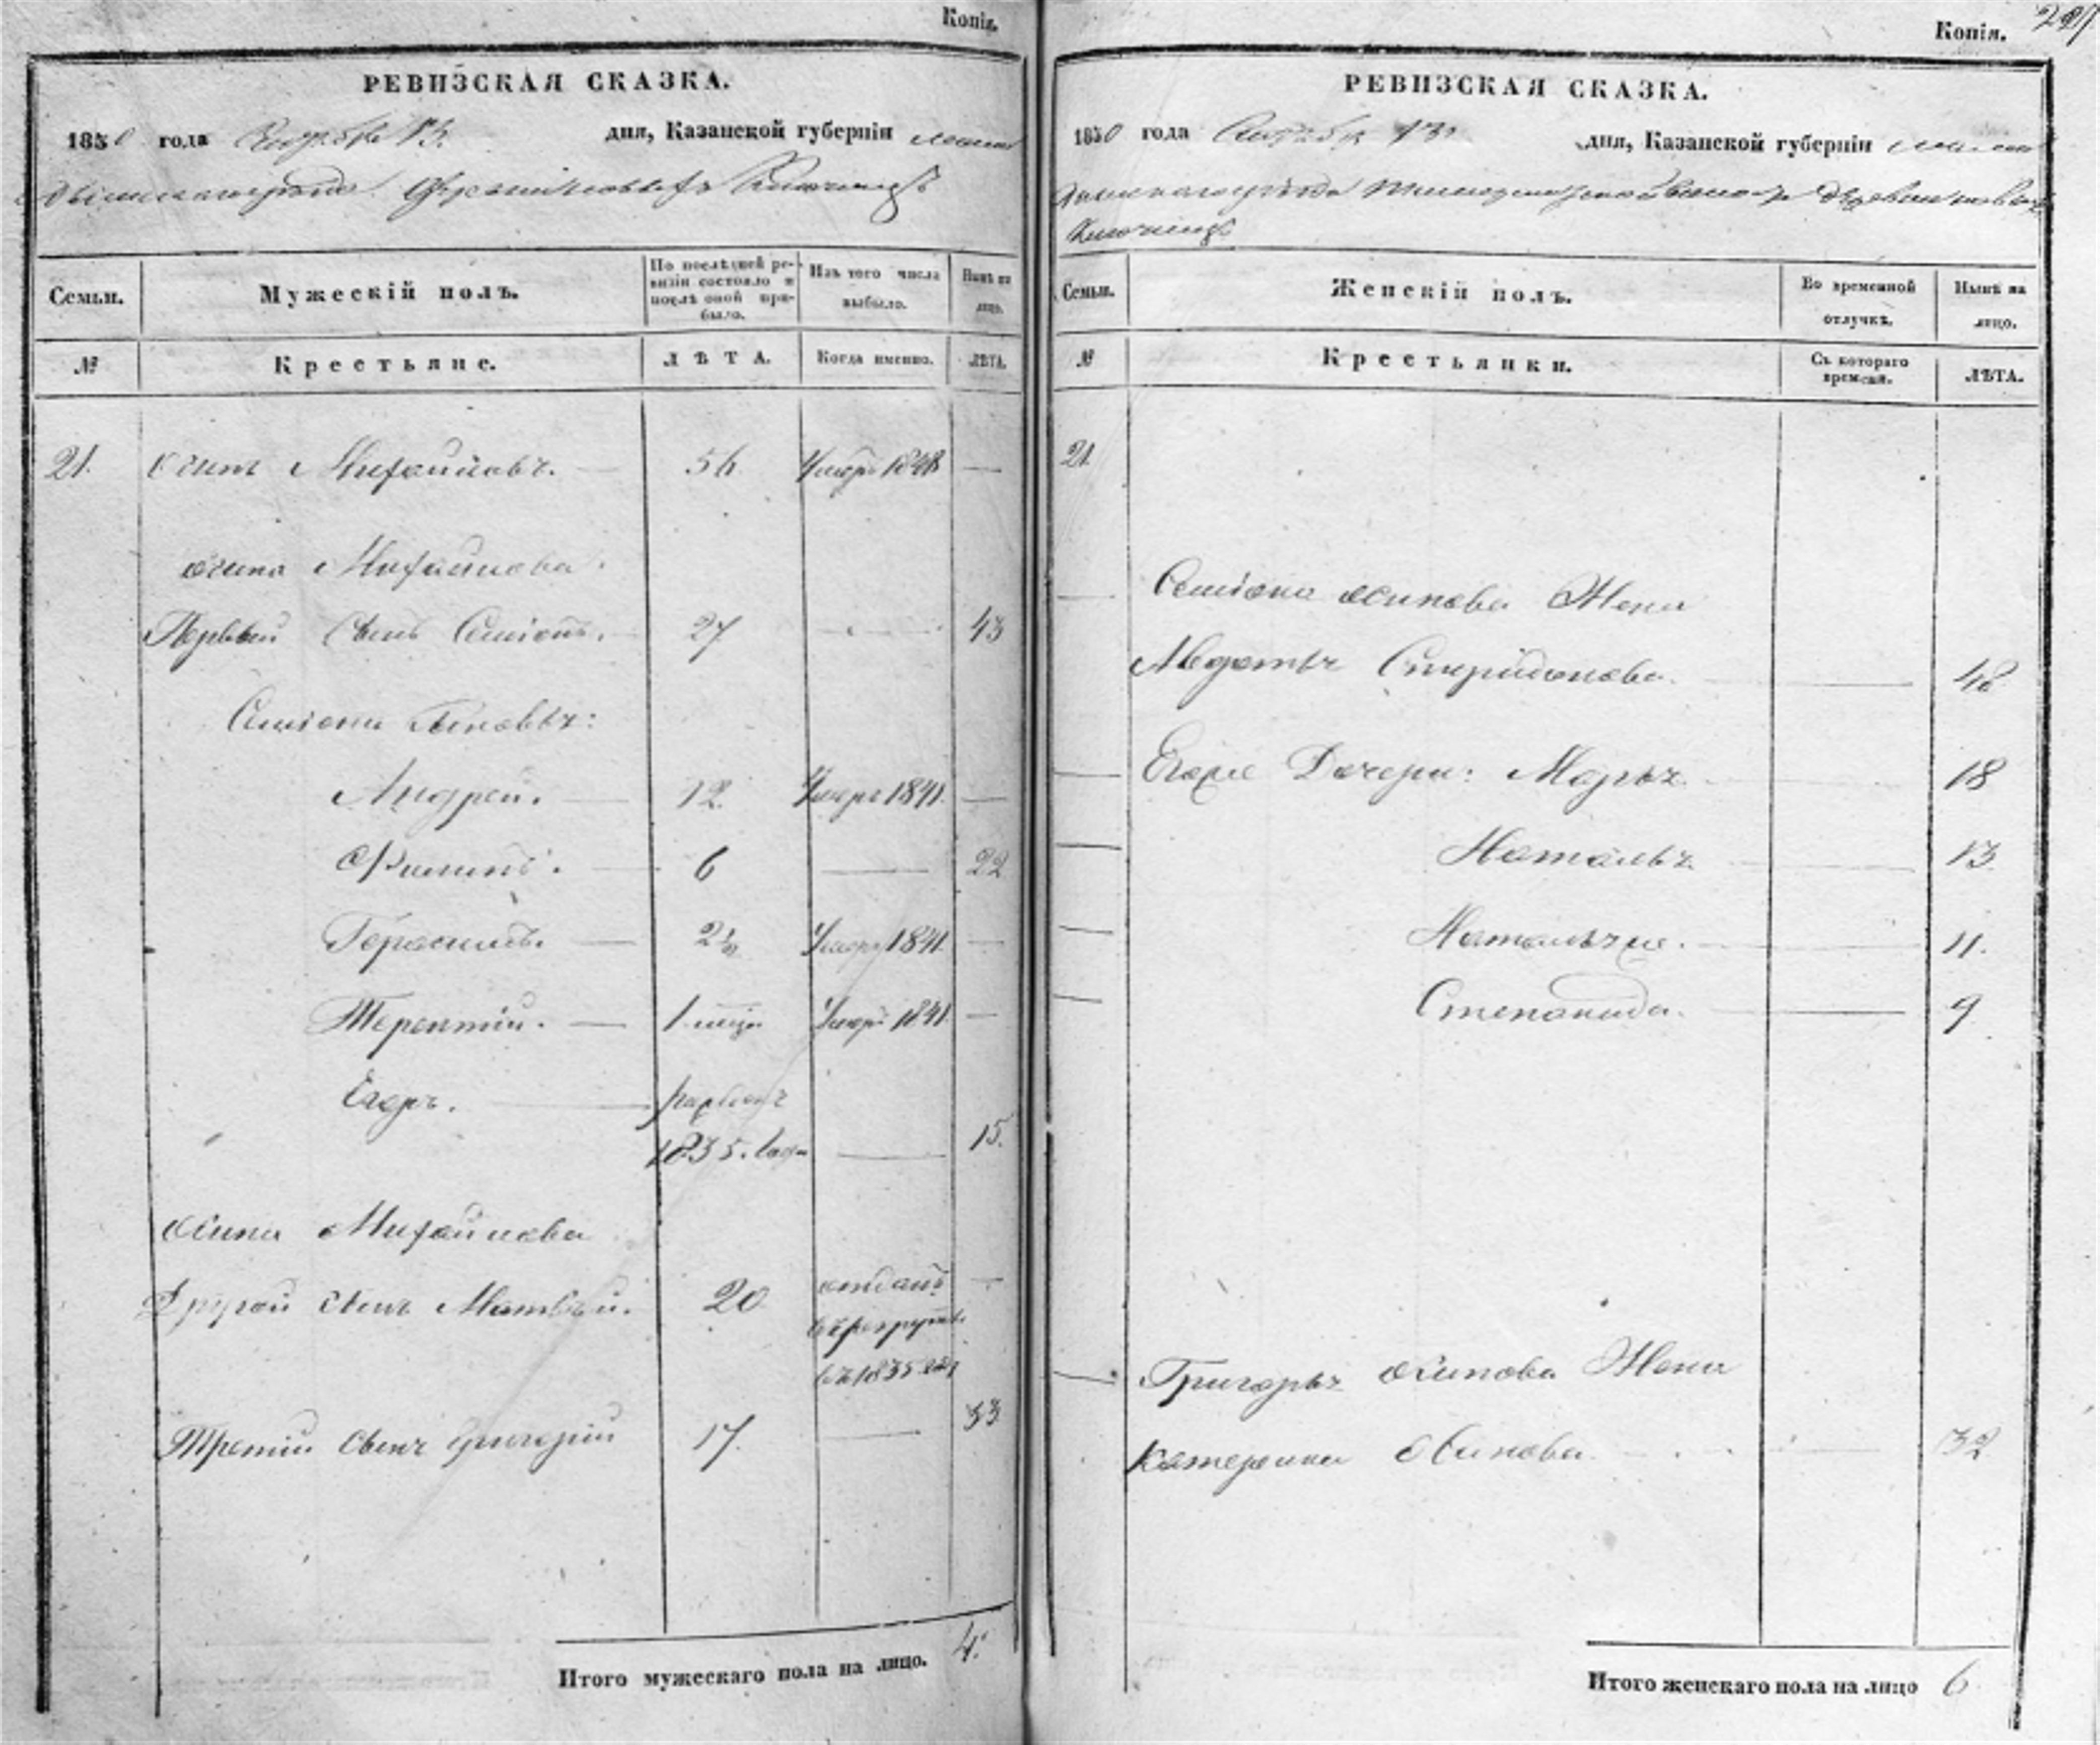 Копія.
РЕВИЗСКАЯ СКАЗКА.
1850 года Октября 13. дня, Казанской губерніи
Семьи. Мужескій полъ. По послѣдней ревизіи состояло и послѣ оной прибыло. Изъ того числа выбыло. Нынѣ на лицо.
№ Крестьяне. ЛѢТА. Когда именно. ЛѢТА.
21. Осипъ Михайловъ. — 56 Умеръ 1848 —
Осипа Михайлова
Первый Сынъ Семіонъ. — 27 — 43
Семіона Сыновья:
Андрей. — 12. Умеръ 1841. —
Филипъ. — 6 — 22
Герасимъ. — 2½ Умеръ 1841. —
Терентій. — 1 Умеръ 1841 —
Егоръ. — рожденъ
1835. года — 15.
Осипа Михайлова
Другой сынъ Матвѣй. 20 отданъ —
въ рекруты
въ 1835 году
Третій сынъ Григорій 17. — 33
Итого мужескаго пола на лицо. 4.
Копія.
РЕВИЗСКАЯ СКАЗКА.
1850 года Октября 13 дня, Казанской губерніи
Семьи. Женскій полъ. Во временной отлучкѣ. Нынѣ на лицо.
№ Крестьянки. Съ котораго времени. ЛѢТА.
21.
Семіона Осипова Жена
Авдотья Спиридонова. —
Егоже Дочери: Марья — 18
Наталья — 13
Наталья же. — 11.
Степанида. — 9
Григорья Осипова Жена
Катерина Осипова — 32
Итого женскаго пола на лицо 6